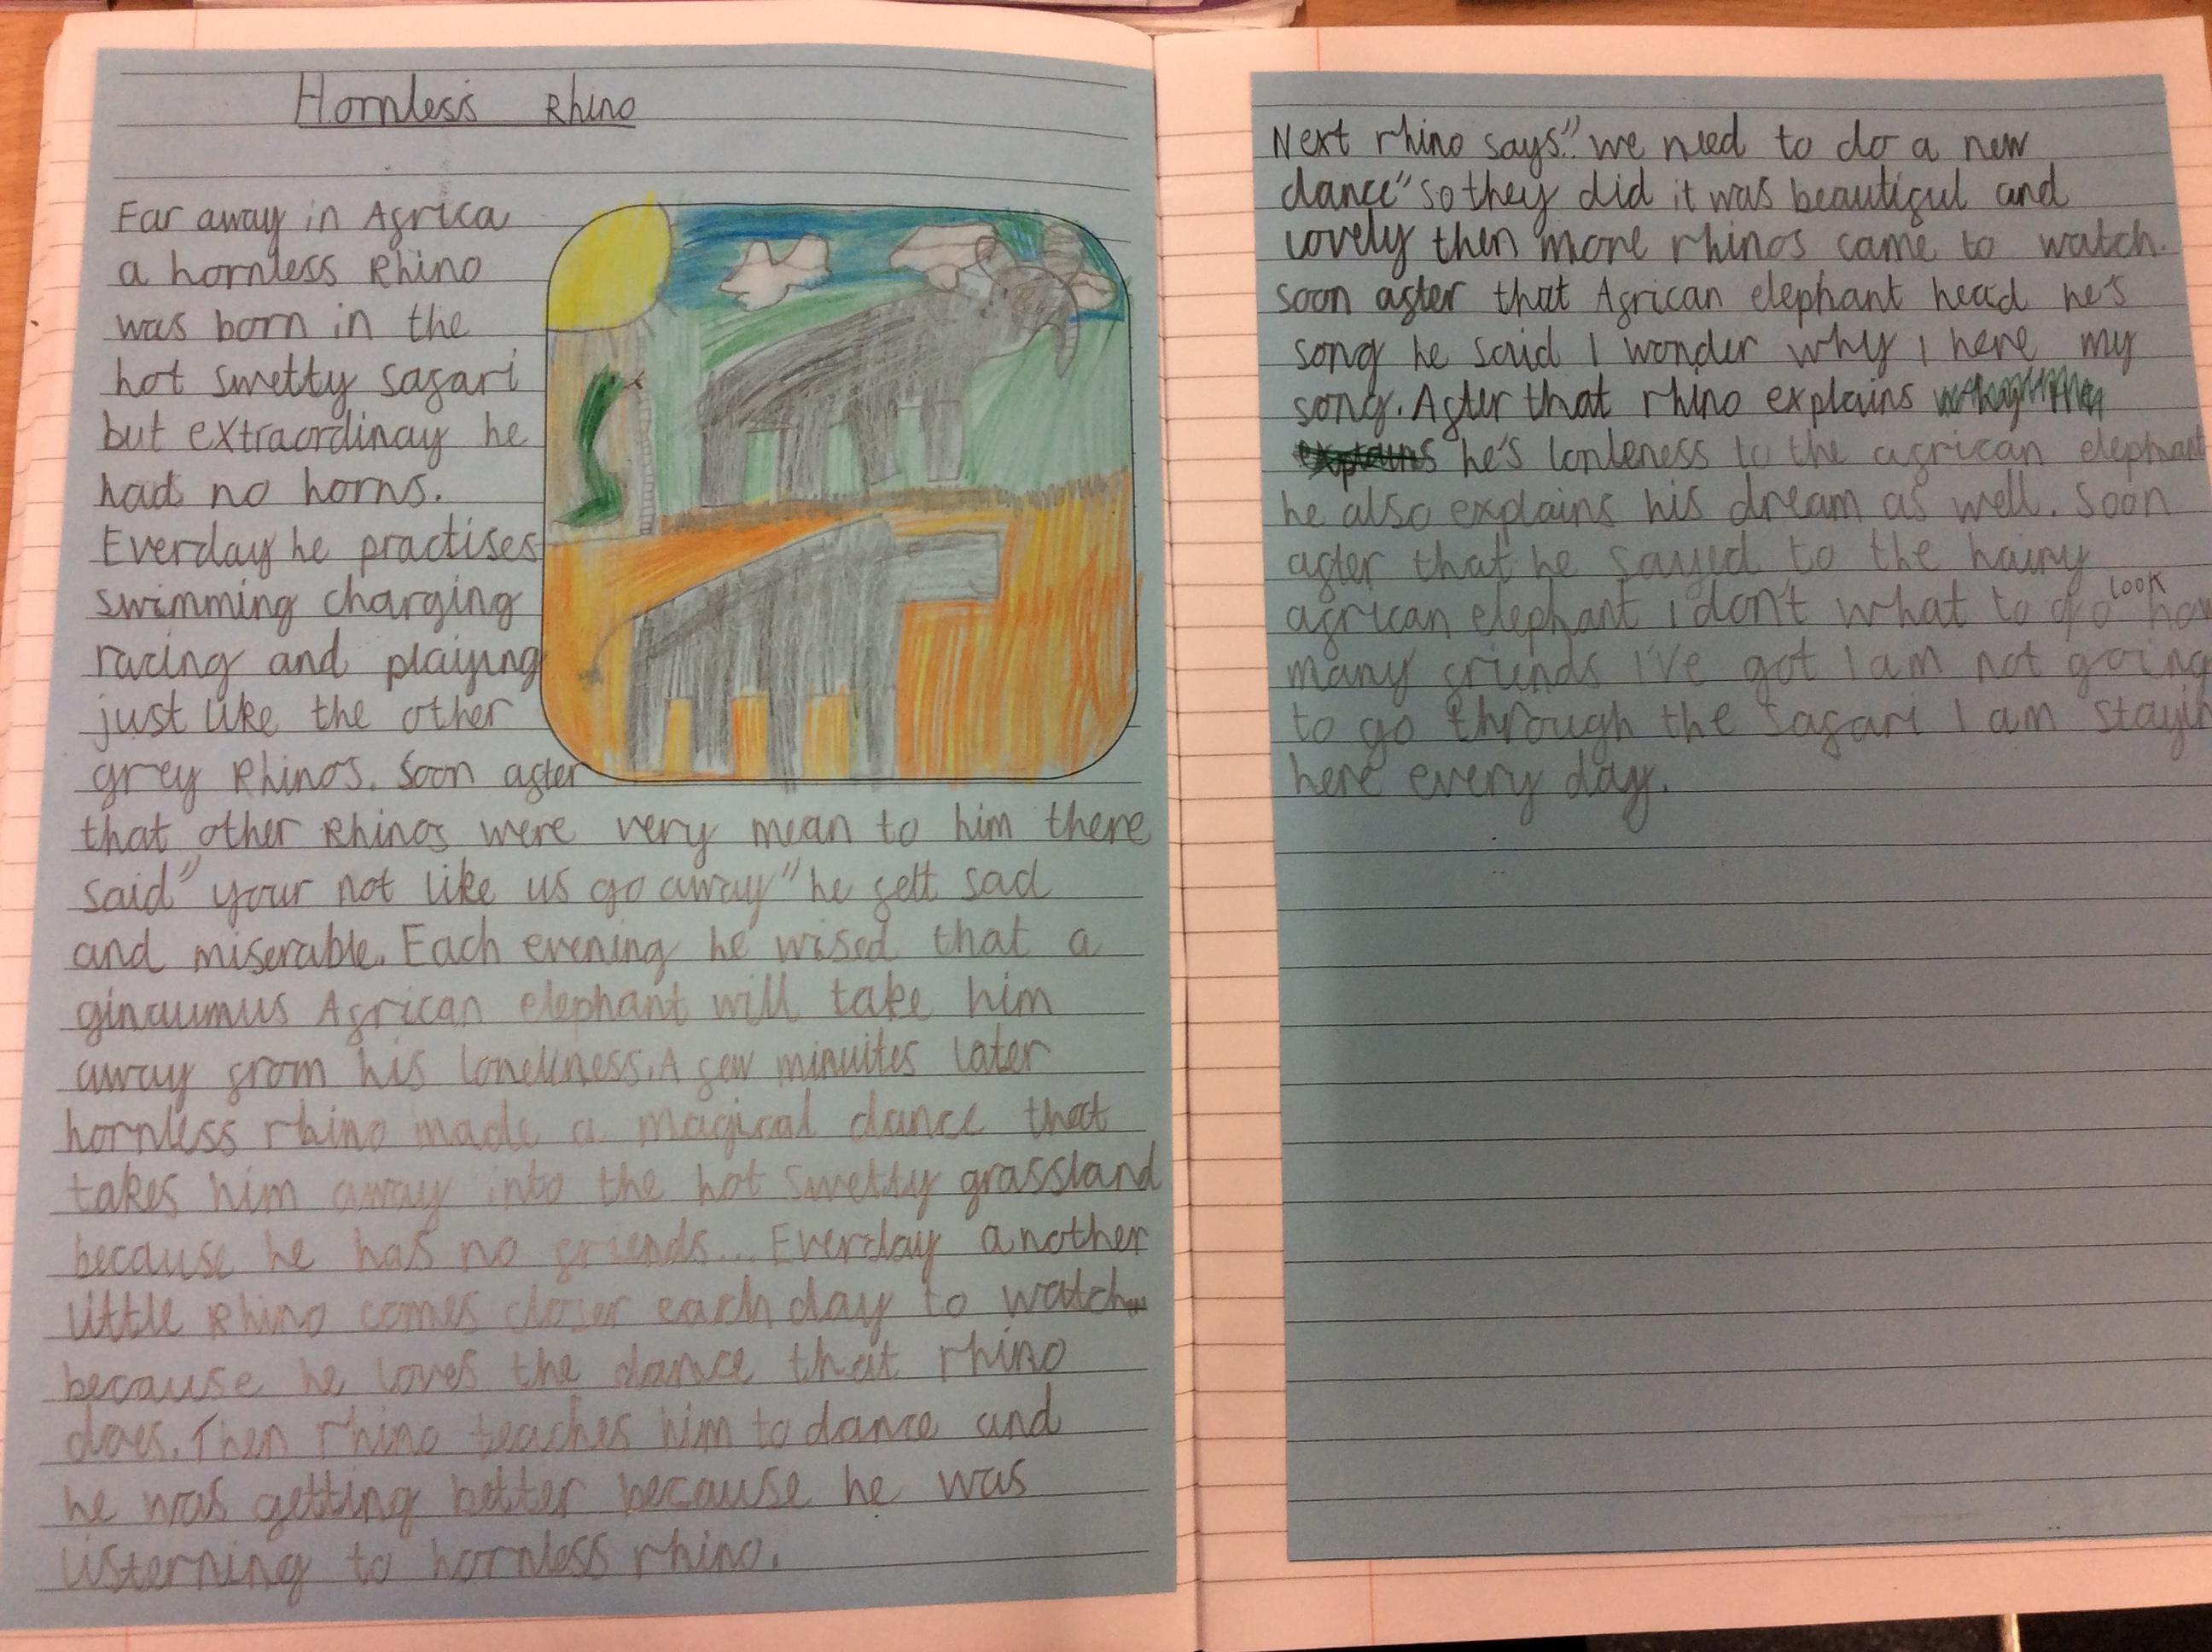 Hornless Rhino
Far away in Africa
a hornless Rhino
was born in the
hot swetty safari
but extraordinay he
had no horns.
Everday he practises
swimming charging
racing and plaiyng
just like the other
grey Rhinos. Soon after
that other Rhinos were very mean to him there
said" your not like us go away" he felt sad
and miserable. Each evening he wised that a
ginaumus African elephant will take him
away from his lonellness. A few minuites later
hornless rhino made a magical dance that
takes him away into the hot swetty grassland
because he has no friends... Everday another
little Rhino comes closer each day to watch
because he loves the dance that rhino
does. Then rhino teaches him to dance and
he was getting better because he was
listerning to hornless rhino.
Next rhino says." we need to do a new
dance" so they did it was beautiful and
lovely then more rhinos came to watch.
Soon after that African elephant head he's
song he said I wonder why I here my
song. After that rhino explains
explains he's lonleness to the african elephant
he also explains his dream as well. Soon
after that he sayed to the hairy
african elephant I don't what to go look how
many friends I've got I am not going
to go through the safari I am stayin
here every day.